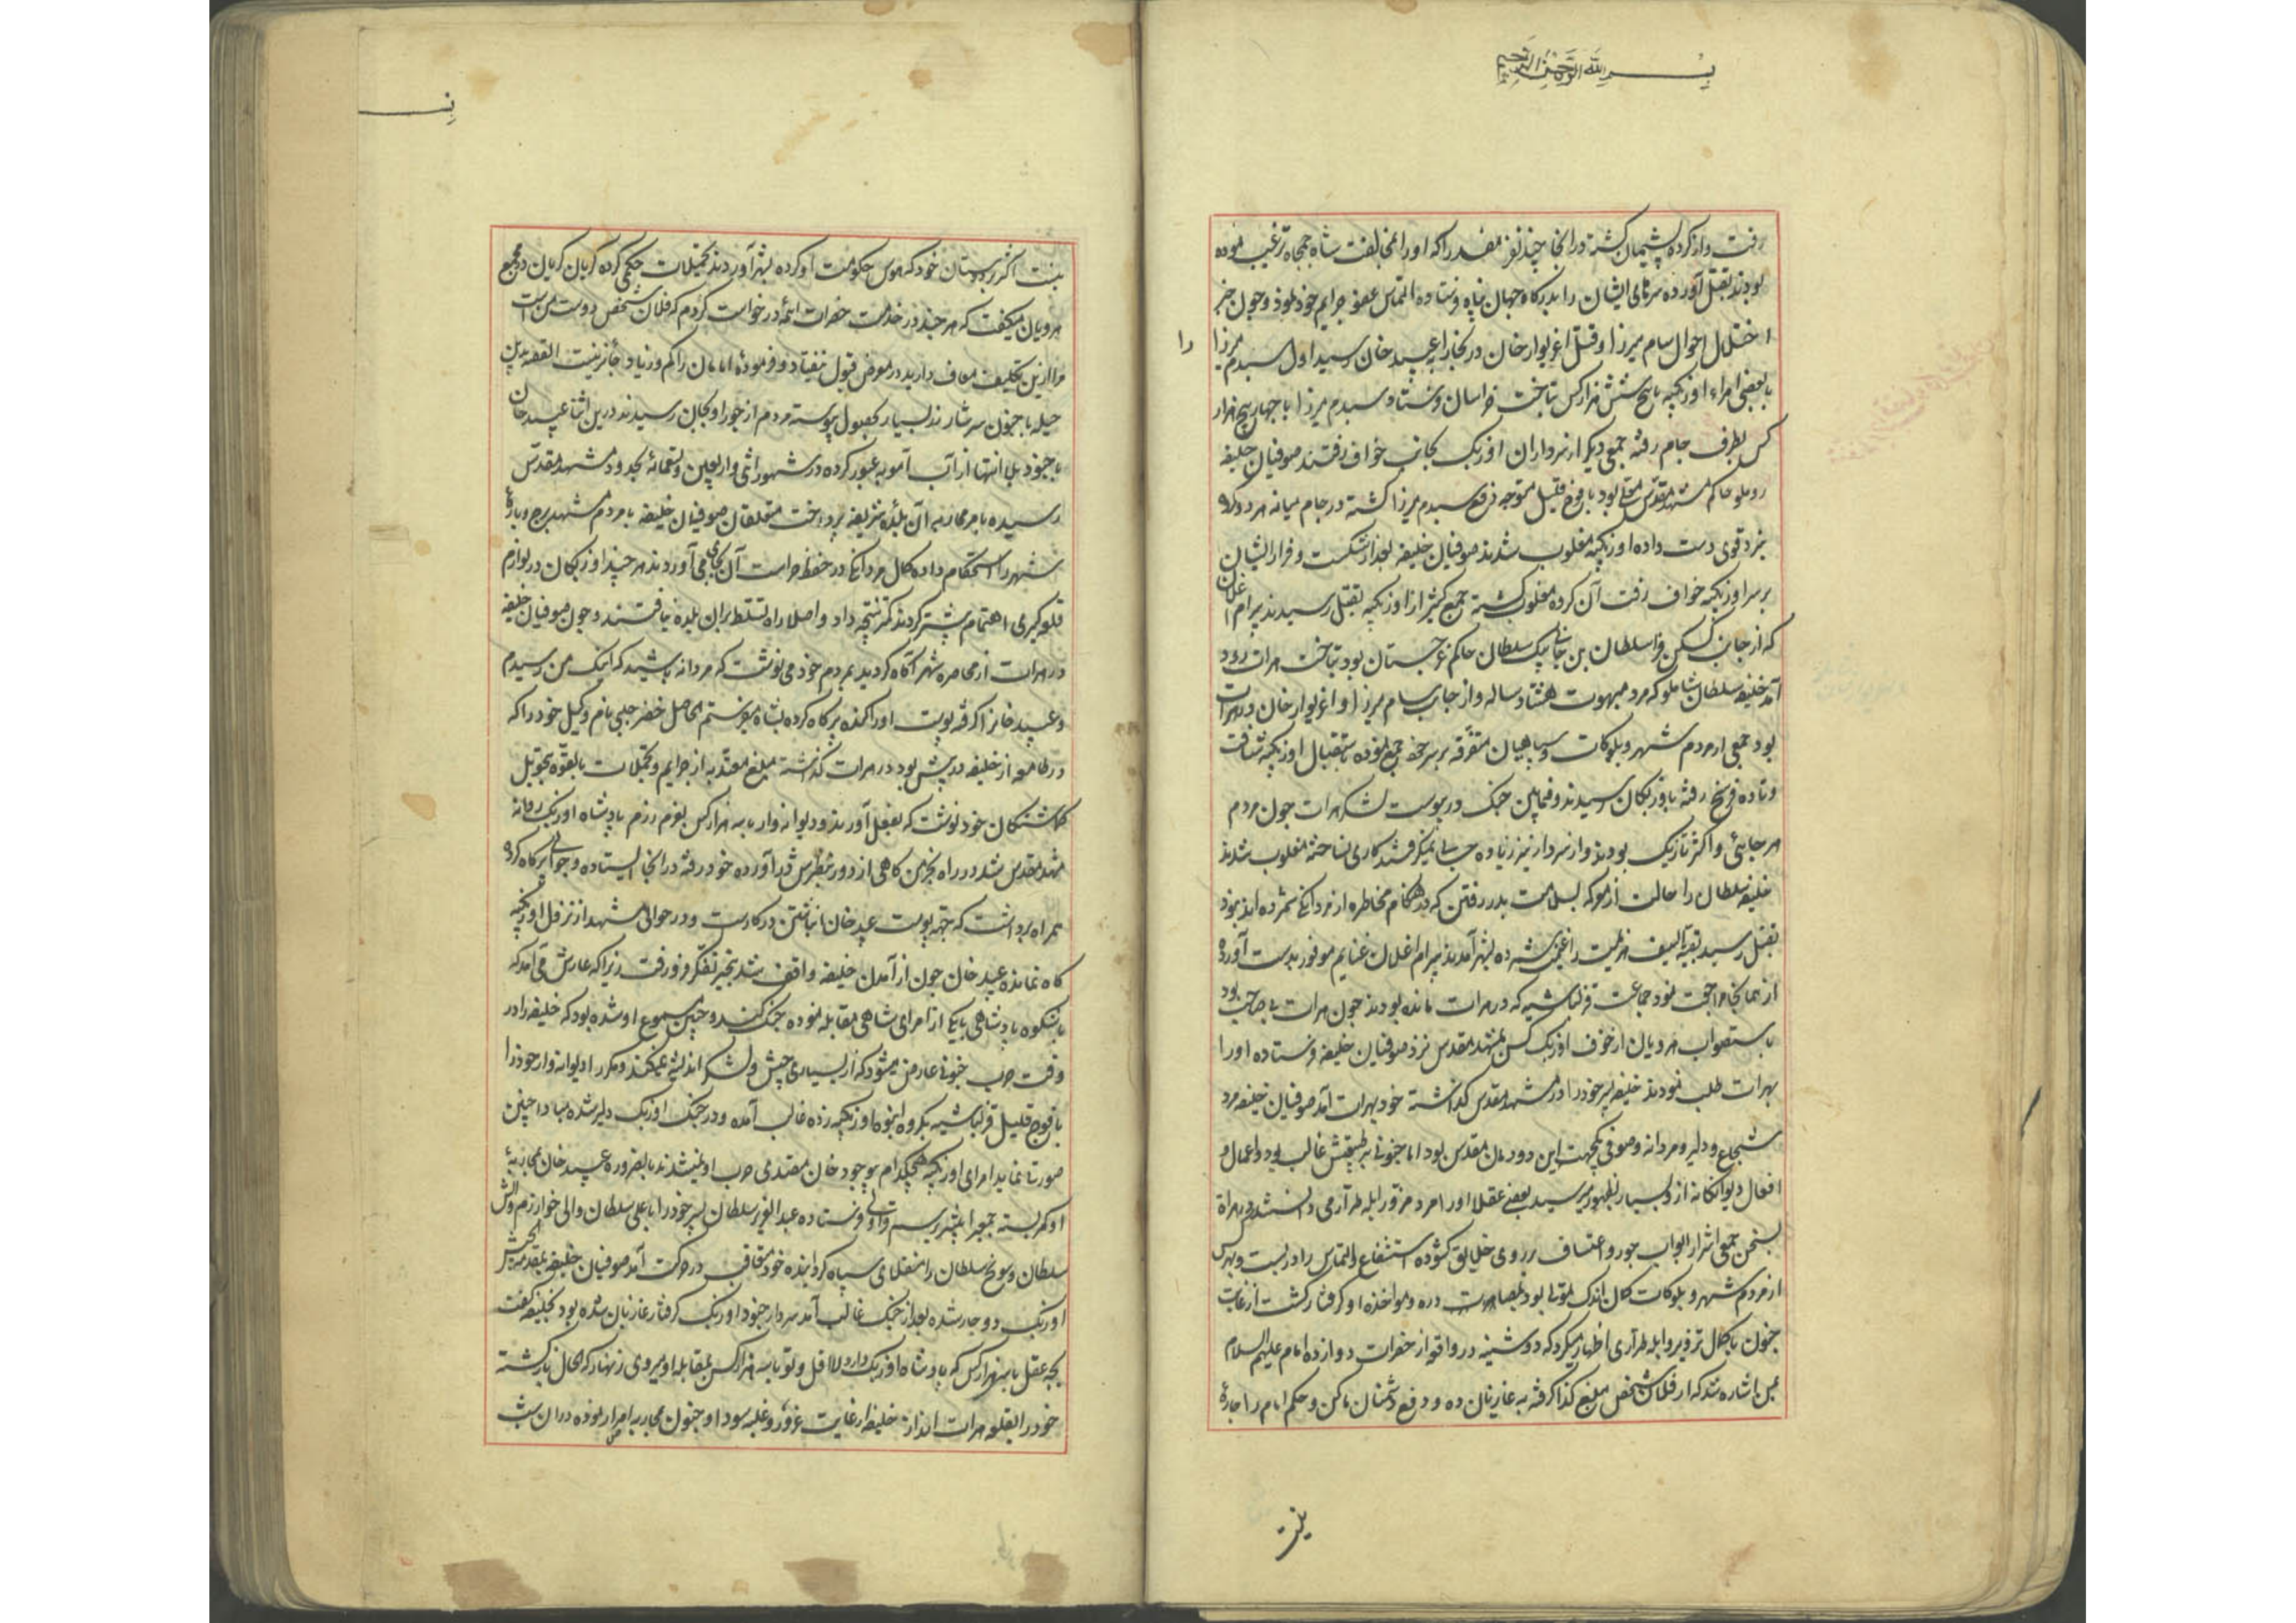 بسم الله الرحمن الرحیم
رفت و از کرده پشیمان گشته در انجا چند نفر مفسد را که او را بمخالفت شاه جمجاه ترغیب نموده
بودند بقتل آورده سرهای ایشان را بدرگاه جهان پناه فرستاده التماس عفو جرایم خود نمود و چون خبر
اختلال احوال سام میرزا و قتل اغزیوار خان در بخارا بعبید خان رسید اول بیسدم میرزا را
با بعضی امراء اوزبکیه با پنج شش هزار کس بتاخت خراسان فرستاد و بیسدم میرزا با چهار پنج هزار
کس بطرف جام رفته جمعی دیگر از سرداران اوزبک بجانب خواف رفتند صوفیان خلیفه
روملو حاکم مشهد مقدس معلی بود با فوج قلیل متوجه دفع بیسدم میرزا گشته در جام میانه هر دو گروه
نبرد قوی دست داده اوزبکیه مغلوب شدند صوفیان خلیفه بعد از شکست و فرار ایشان
بر سر اوزبکیه خواف رفت آن گروه مغلوب گشته جمع کثیر از اوزبکیه بقتل رسیدند بیرام اغلان
که از جانب کسکن قرا سلطان بن جانی بیک سلطان حاکم غرجستان بود بتاخت هرات رود
آمد خلیفه سلطان شاملو که مرد مبهوت هشتاد ساله و از جانب سام میرزا و اغزیوار خان در هرات
بود جمعی از مردم شهر و بلوکات و سپاهیان متفرقه بر سر خود جمع نموده باستقبال اوزبکیه شتافت
و تا ده فرسخ رفته باوزبکان رسیدند و فیمابین جنگ در پیوست لشکر هرات چون مردم
هر جائی و اکثر تازیک بودند و از سردار نیز زیاده حسابی نمیگرفتند کاری نساخته مغلوب شدند
خلیفه سلطان را حالت از معرکه بسلامت بدر رفتن که در هنگام مخاطره از مردانگی شمرده اند نبود
بقتل رسید بقیة السیف هزیمت را غنیمت شمرده بشهر آمدند بیرام اغلان غنایم موفور بدست آورده
از همانجا مراجعت نمود جماعت قزلباشیه که در هرات مانده بودند چون هرات بی صاحب بود
باستصواب هرویان از خوف اوزبک کس بمشهد مقدس نزد صوفیان خلیفه فرستاده او را
بهرات طلب نمودند خلیفه پسر خود را در مشهد مقدس گذاشته خود بهرات آمد صوفیان خلیفه مرد
شجاع و دلیر و مردانه و صوفی یکجهت این دودمان مقدس بود اما جنونی بر طبیعتش غالب بود و اعمال و
افعال دیوانگانه ازو بسیار بظهور میرسید بعضی عقلا او را مرد مزور ابله طراری میدانستند در هراة
بسخن جمعی اشرار ابواب جور و اعتساف بر روی خلایق گشوده استشفاع و التماس را در بست و هر کس
از مردم شهر و بلوکات گمان اندک تمولی بود بمصادره و مواخذه او گرفتار گشت از غایت
جنون یا کمال تزویر و ابله طراری اظهار میکرد که دوشینه در واقعه از حضرات دوازده امام علیهم السلام
بمن اشاره شد که از فلان شخص مبلغ کذا گرفته به غازیان ده و دفع دشمنان ما کن و حکم امام را چاره
نیست
نیست اکثر زبردستان خود که هوس حکومت او کرده بشهر آوردند بتحمیلات حکمی کرده گریان گریان در مجمع
هرویان میگفت که هر چند در خدمت حضرات ائمه درخواست کردم که فلان شخص دوست من است
مرا ازین تکلیف معاف دارید در معرض قبول نیفتاد و فرموده امامان را کم و زیاد جایز نیست القصه بدین
حیله یا جنون سرشار زر بسیار بحصول پیوسته مردم از جور او بجان رسیدند درین اثنا عبید خان
با جنود بی انتها از آب آمویه عبور کرده در شهور اثنی و اربعین و تسعمائه بحدود مشهد مقدس
رسیده بامر محاربه آن بلده شریفه پرداخت متعلقان صوفیان خلیفه با مردم مشهد برج و باره
شهر را استحکام داده کمال مردانگی در حفظ و حراست آن بجای می آوردند هر چند اوزبکان در لوازم
قلعه گیری اهتمام بیشتر کردند کمتر نتیجه داد و اصلا راه تسلط بران بلده نیافتند و چون صوفیان خلیفه
در هرات از محاصره شهر آگاه گردید بمردم خود می نوشت که مردانه باشید که اینک من رسیدم
و عبید خان را گرفته پوست او را کنده پر کاه کرده بشاه میفرستم الحاصل خضر چلبی نام وکیل خود را که
در طامعه از خلیفه در پیش بود در هرات گذاشته مبلغ معتد به از جرایم و تحمیلات بالقوه تحویل
گماشتگان خود نوشت که بفعل آورند و دیوانه وار با سه هزار کس بعزم رزم پادشاه اوزبک روانه
مشهد مقدس شد در راه خرمن کاهی از دور بنظرش در آورده خود رفته در انجا ایستاده و جوالی پر کاه کرده
همراه برداشت که جهته پوست عبید خان انباشتن در کارست و در حوالی مشهد از نزول اوزبکیه
کاه نمانده عبید خان چون از آمدن خلیفه واقف شد ببحر تفکر فرو رفت زیرا که عارش می آمد که
با شکوه پادشاهی با یکی از امرای شاهی مقابله نموده جنگ کند و چنین مسموع او شده بود که خلیفه را در
وقت حرب جنونی عارض میشود که از بسیاری جیش و لشکر اندیشه نمیکند و مکرر دیوانه وار خود را
با فوج قلیل قزلباشیه بگروه انبوه اوزبکیه زده غالب آمده و در جنگ اوزبک دلیر شده مبادا چنین
صورتی نماید امرای اوزبکیه هیچکدام بوجود خان مقصدی حرب او نمیشدند بالضروره عبید خان بمحاربه
او کمر بسته عبد العزیز سلطان پسر خود را با علی سلطان والی خوارزم
سلطان و سونج سلطان را منقلای سپاه گردانیده خود متعاقب در حرکت آمد صوفیان خلیفه بمقدمه الجیش
اوزبک دوچار شده بعد از جنگ غالب آمد سردار جنود اوزبک گرفتار غازیان شده بود بخلیفه گفت
بچه عقل با سه هزار کس که پادشاه اوزبک دارد بمقابله او میروی زنهار که بحال بازگشته
خود را بقلعه هرات انداز خلیفه از غایت غرور و غلبه سودا و جنون بمحاربه اصرار نموده دران شب